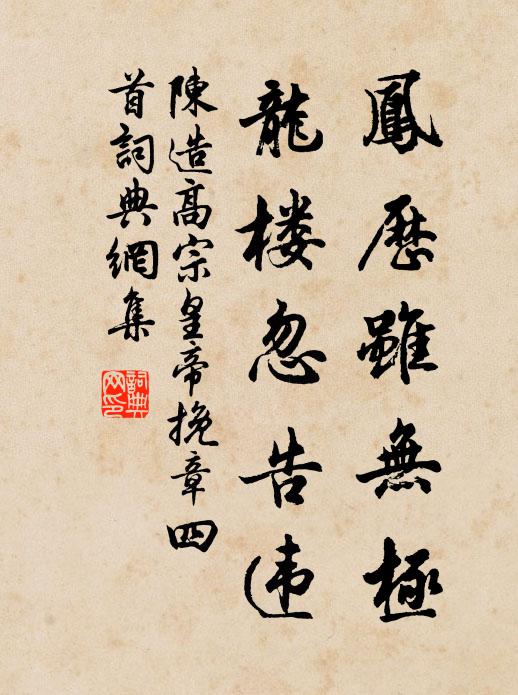 鳳歷雖無極
龍楼忽告违
陳造高宗皇帝挽章四
首詞典網集
詞典
网印